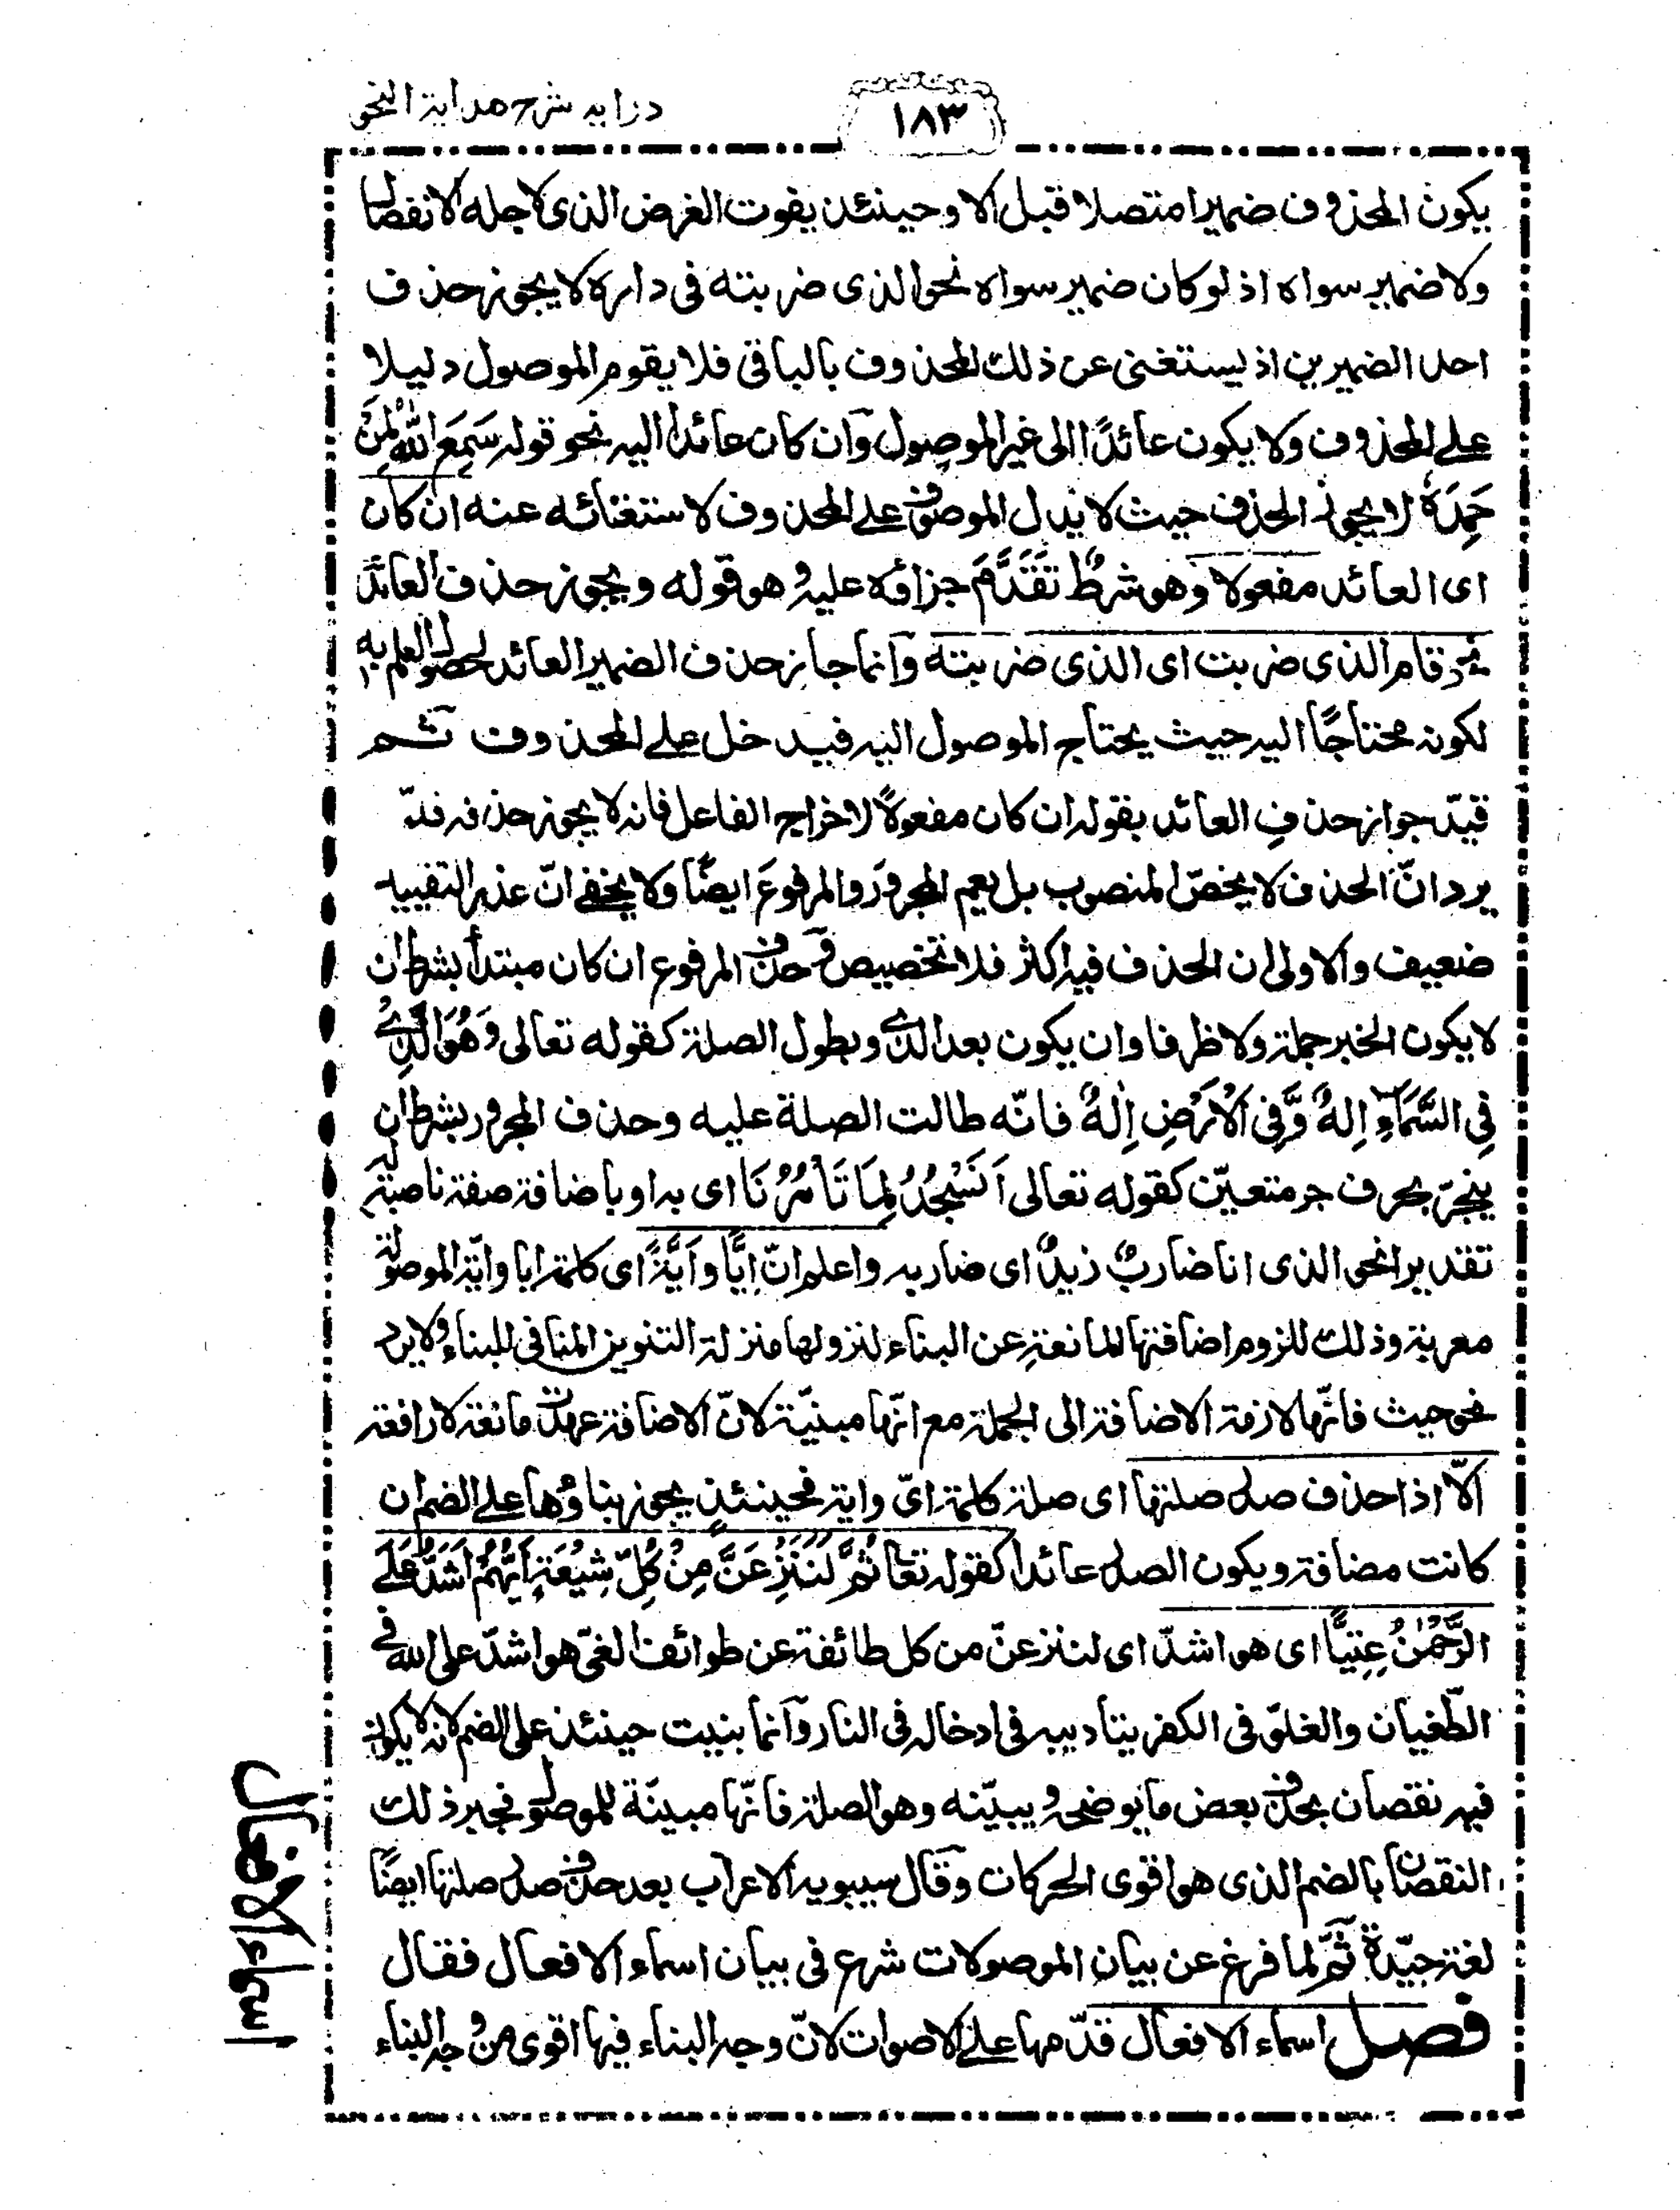 درايه شرح هداية النحو
١٨٣
يكون المحذوف ضميرا متصلا قبل الا وحينئذ يفوت الغرض الذى لاجله الانفصال
ولا ضمير سواه اذ لو كان ضمير سواه نحو الذى ضربته فى داره لا يجوز حذف
احد الضميرين اذ يستغنى عن ذلك المحذوف بالباقى فلا يقوم الموصول دليلا
على المحذوف ولا يكون عائدًا الى غير الموصول وان كان عائدا اليه نحو قوله سَمِعَ اللّٰهُ لِمَنْ
حَمِدَهٗ لا يجوز الحذف حيث لا يدل الموصوف على المحذوف لاستغنائه عنه ان كان
اى العائد مفعولا وهو شرطٌ تَقَدَّمَ جزاؤه عليه وهو قوله ويجوز حذف العائد
نحو قام الذى ضربت اى الذى ضربته وانما جاز حذف الضمير العائد لحصول العلم به
لكونه محتاجًا اليه حيث يحتاج الموصول اليه فيدخل على المحذوف ثم
قيّد جواز حذفِ العائد بقوله ان كان مفعولاً لاخراج الفاعل فانه لا يجوز حذفه فلا
يرد انّ الحذف لا يخصّ المنصوب بل يعم المجرورَ والمرفوعَ ايضًا ولا يخفى انّ عذر التقييد
ضعيف والاولى ان الحذف فيه اكثر فلا تخصيص وحذف المرفوع ان كان مبتدأ بشرط ان
لا يكون الخبر جملة ولا ظرفا وان يكون بعد الذى وبطول الصلة كقوله تعالى وَهُوَ الَّذِىْ
فِى السَّمَآءِ اِلٰهٌ وَّفِى الْاَرْضِ اِلٰهٌ فانّه طالت الصلة عليه وحذف المجرور بشرط ان
ينجرّ بحرف جر متعيّن كقوله تعالى اَنَسْجُدُ لِمَا تَأْمُرُنَا اى به او باضافة صفة ناصبة له
تقديرا نحو الذى انا ضاربٌ زيدٌ اى ضاربه واعلم انّ اِيًّا واَيَّةً اى كلمة ايا واية الموصولة
معربة وذلك للزوم اضافتها المانعةِ عن البناء لنزولها منزلة التنوين المنافى للبناء ولا يرد
نحو حيث فانّها لازمة الاضافة الى الجملة مع انّها مبنيّة لانّ الاضافة عهدت مانعة لا رافعة
الّا اذا حذف صدر صلتها اى صلة كلمة اىّ واية فحينئذٍ يجوز بناؤها على الضم ان
كانت مضافة ويكون الصدر عائدا كقوله تعا ثُمَّ لَنَنْزِعَنَّ مِنْ كُلِّ شِيْعَةٍ اَيُّهُمْ اَشَدُّ عَلَى
الرَّحْمٰنُ عِتِيًّا اى هو اشدّ اى لننزعنّ من كل طائفة عن طوائف الغىّ هو اشدّ على الله فى
الطّغيان والغلوّ فى الكفر بتاديبه فى ادخاله فى النار وانما بنيت حينئذ على الضم لانه لا يكون
فيه نقصان بحذف بعض ما يوضحه ويبيّنه وهو الصلة فانّها مبينّة للموصول فجبر ذلك
النقصان بالضم الذى هو اقوى الحركات وقال سيبويه الاعراب بعد حذف صدر صلتها ايضًا
لغة جيّدة ثُمَّ لما فرغ عن بيان الموصولات شرع فى بيان اسماء الافعال فقال
فصل اسماء الافعال قدّمها على الاصوات لانّ وجه البناء فيها اقوى من وجه البناء
اسماء الافعال